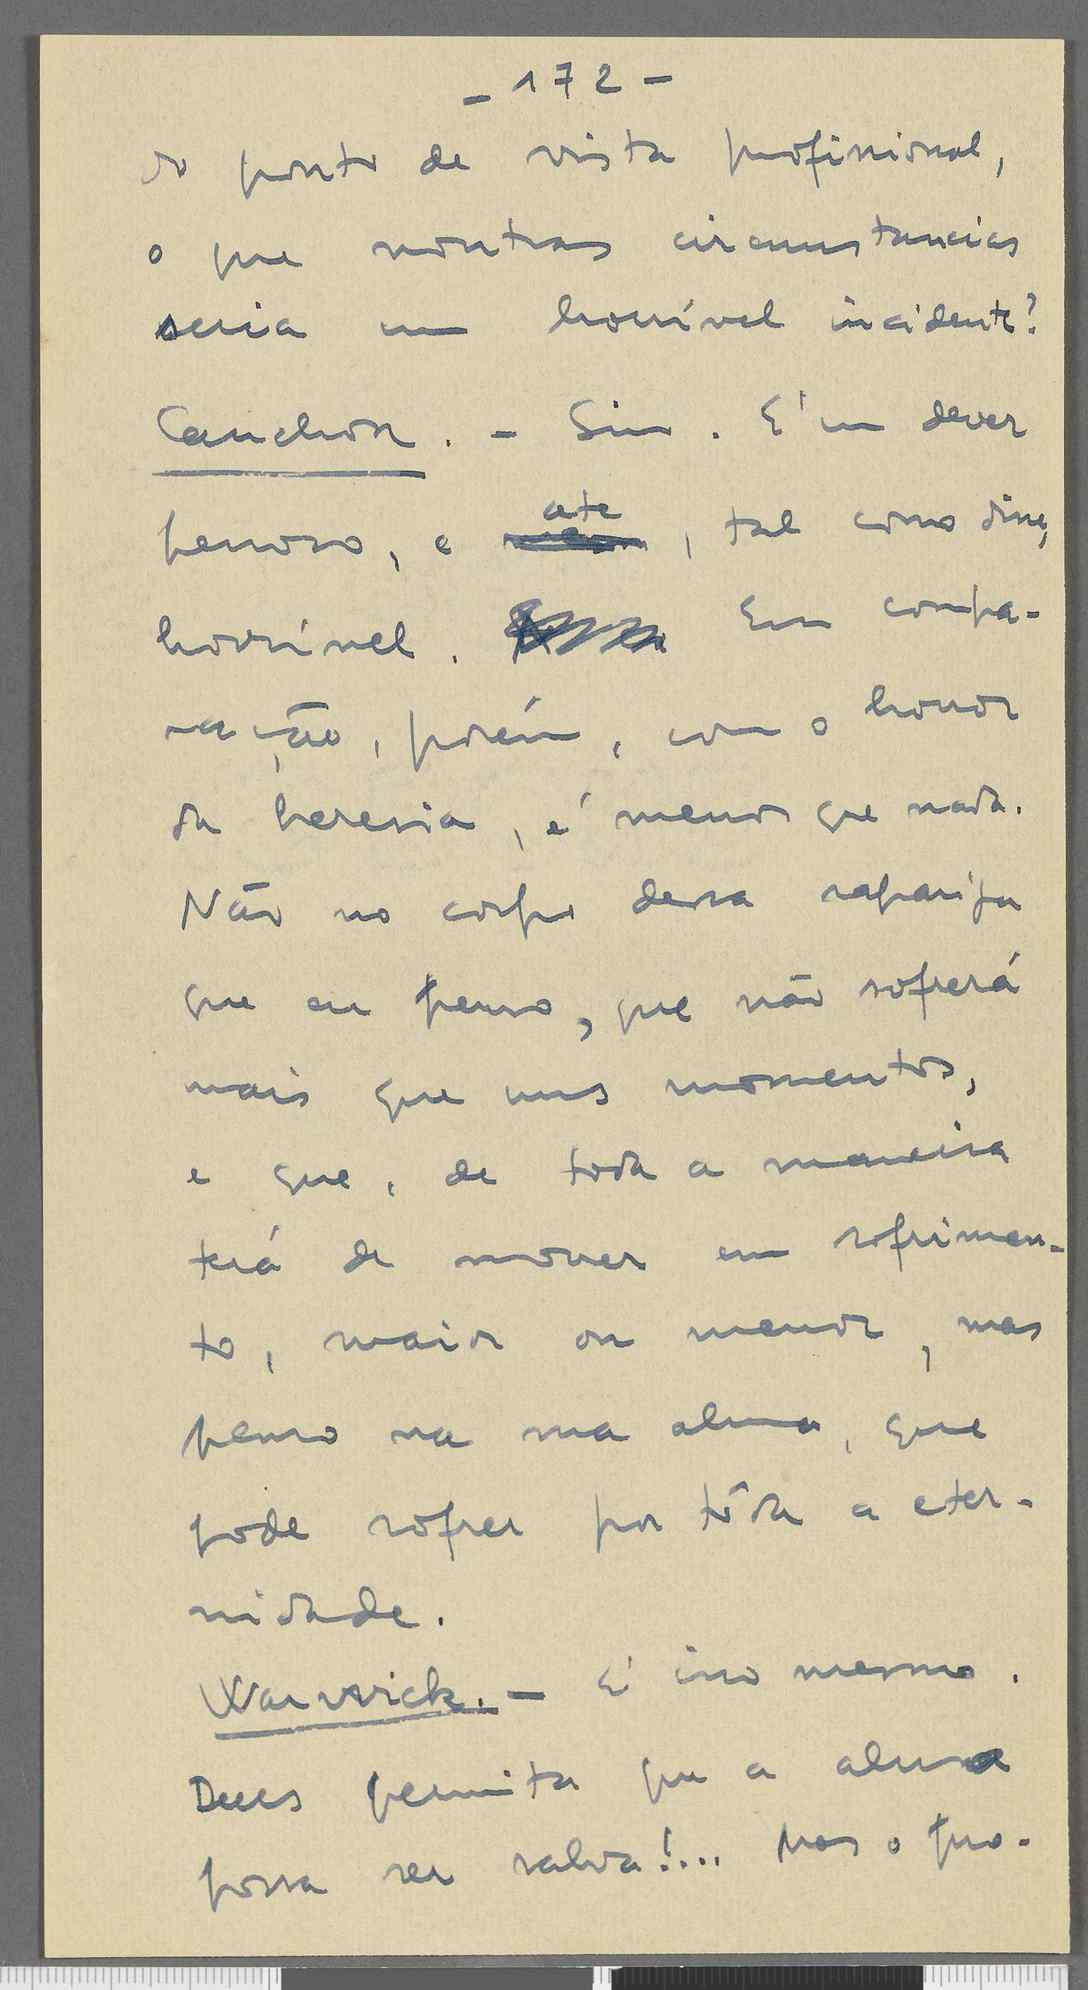 - 172 -
do ponto de vista profissional,
o que noutras circunstancias
seria um horrível incidente?
Cauchon. - Sim. E' um dever
penoso, e até, tal como disse,
horrível. Em compa-
ração, porém, com o horror
da heresia, é menos que nada.
Não no corpo dessa rapariga
que eu penso, que não sofrerá
mais que uns momentos,
e que, de toda a maneira
terá de morrer em sofrimen-
to, maior ou menor, mas
penso na sua alma, que
pode sofrer por tôda a eter-
nidade.
Warwick. - E' isso mesmo.
Deus permita que a alma
possa ser salva!... Mas o pro-